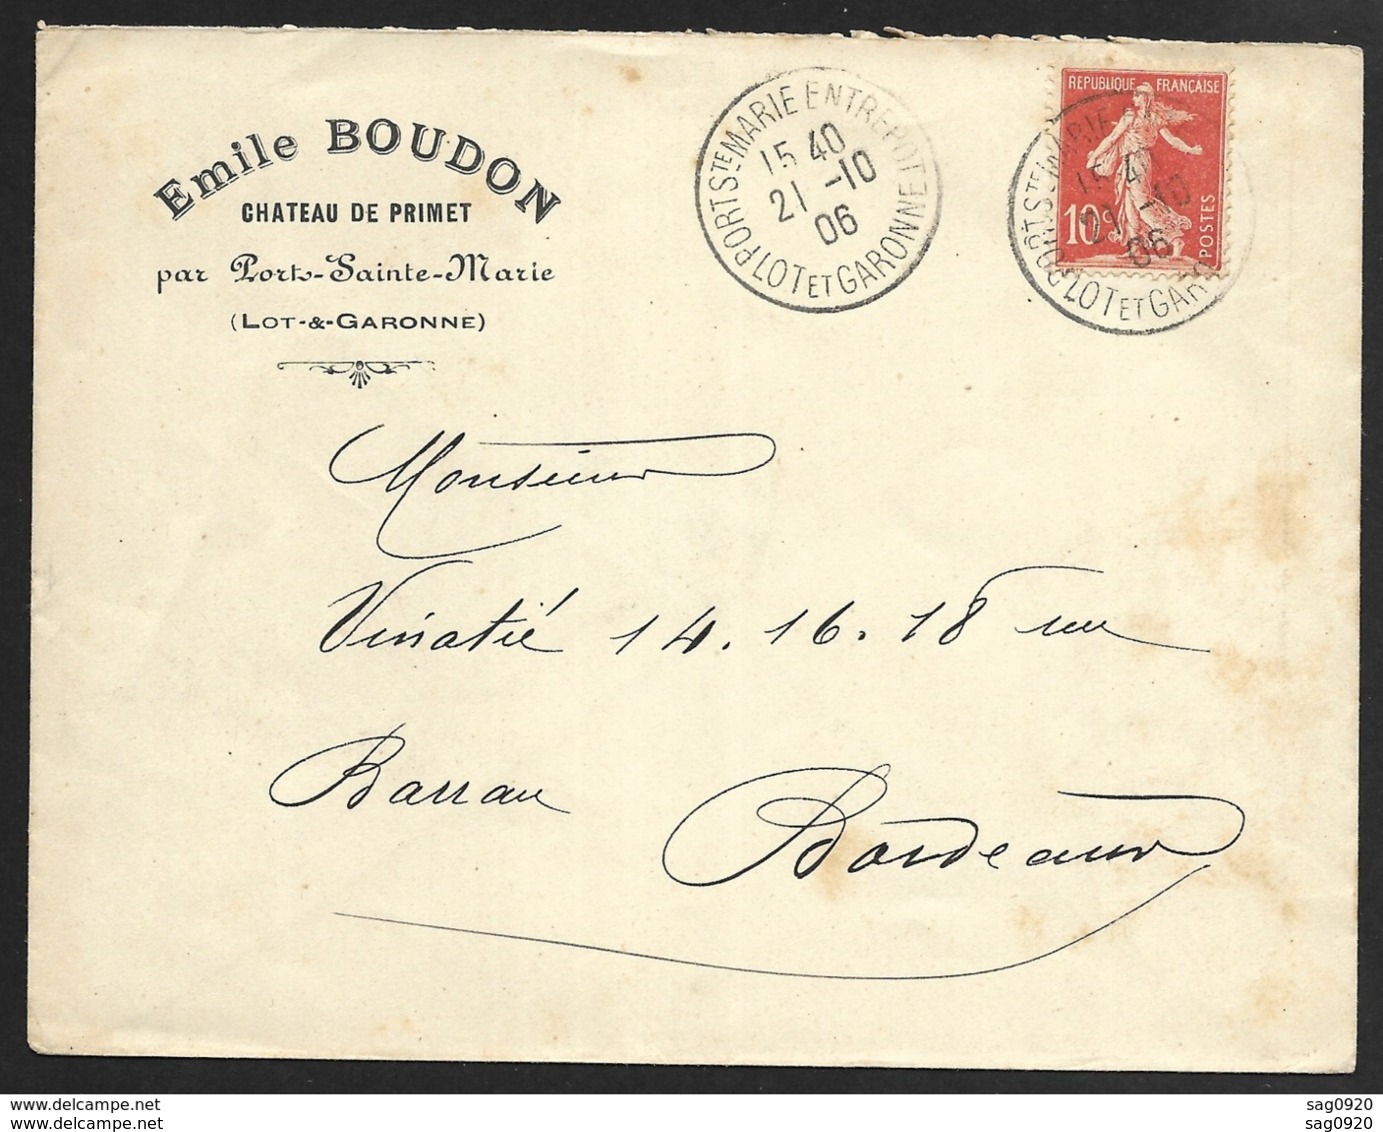 Emile BOUDON
CHATEAU DE PRIMET
par Ports-Sainte-Marie
(LOT-&-GARONNE)
PORT STE MARIE ENTREPOT
15 40
21 -10
06
LOT ET GARONNE
REPUBLIQUE FRANÇAISE
10c
POSTES
PORT STE MARIE
15 40
21 -10
06
LOT ET GARO
Monsieur
Vinatié 14. 16. 18 rue
Barrau
Bordeaux
www.delcampe.net
sag0920
www.delcampe.net
sag0920